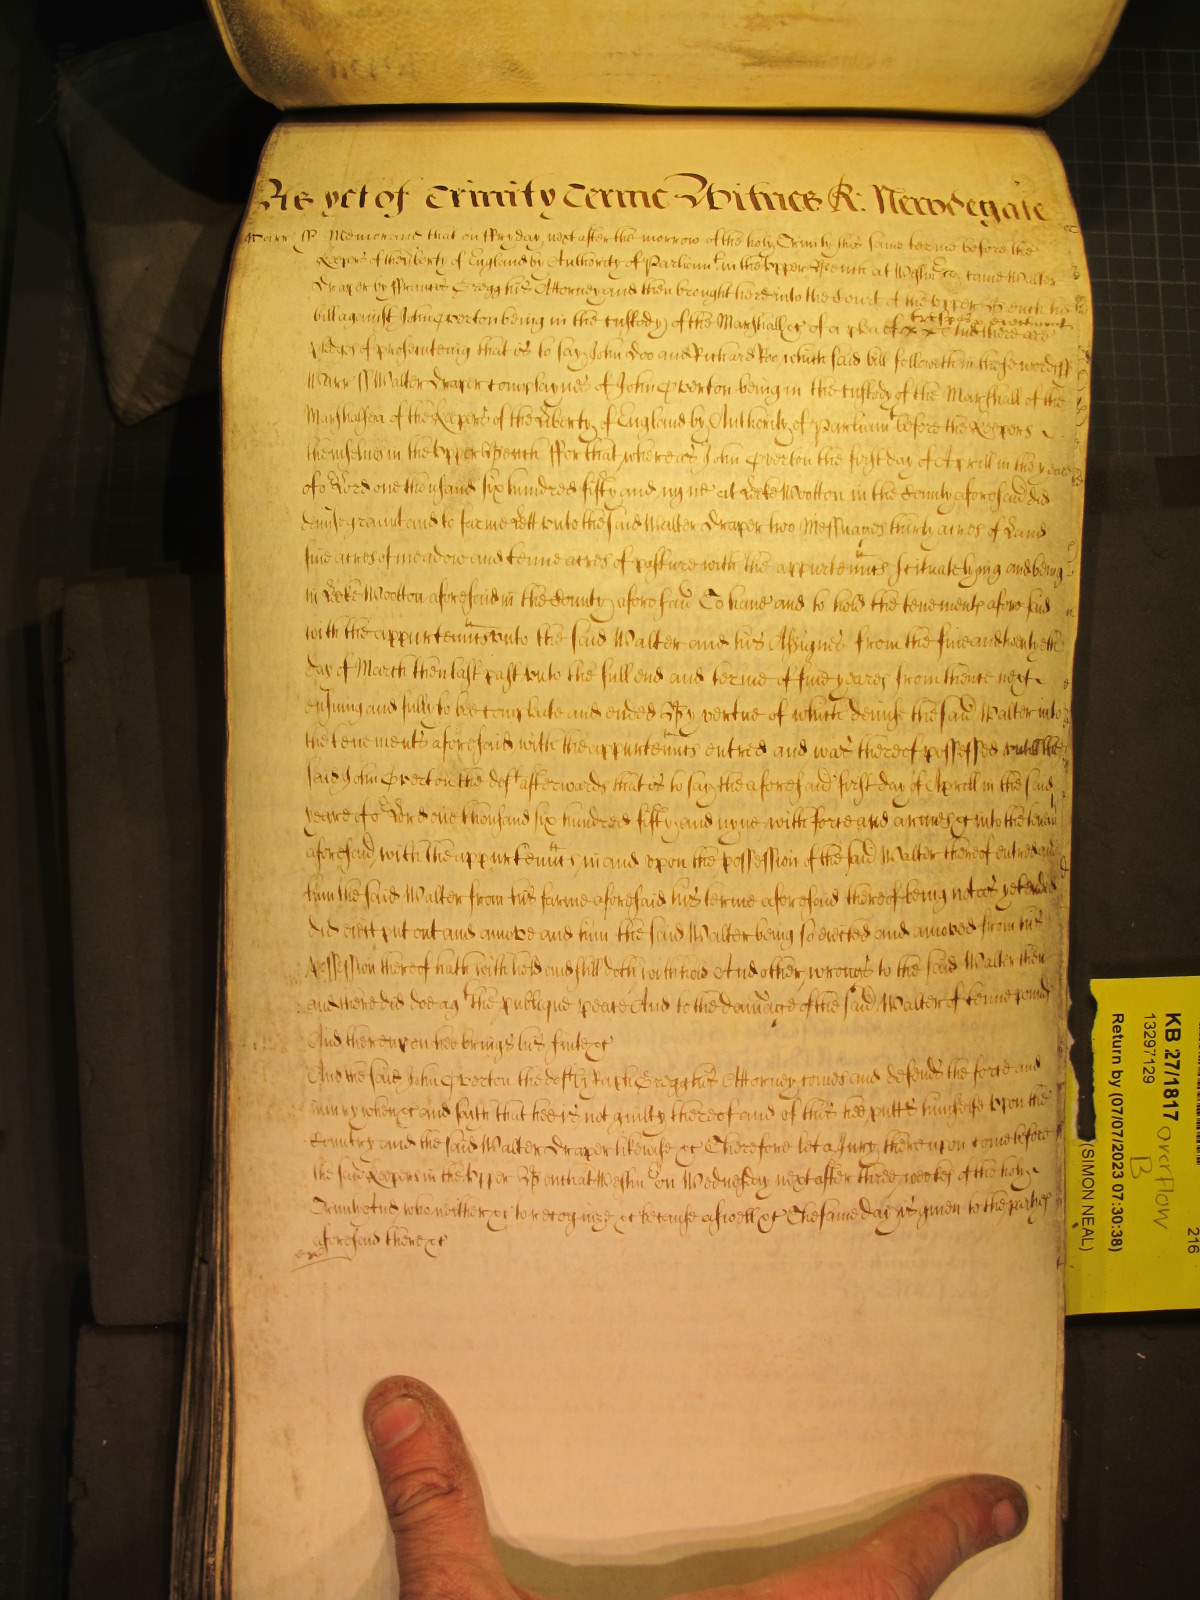 As yet of Trinity Terme Witnes R: Newdegate
Warr ss Memorand that on ffryday next after the morrow of the holy Trinity this same terme before the
Keepers of the Liberty of England by Authority of Parliamt in the Upper Bench at Westmr &c came Walter
Draper by ffrancis Gregg his Attorney and then brought here into the Court of the Upper Bench his
bill against John Overton being in the custody of the Marshall &c of a plea of trespas & eiectment And there are
pledges of prosecuting that is to say John Doo and Richard Roo which said bill followeth in these words ss
Warr ss Walter Draper complaynes of John Overton being in the custody of the Marshall of the
Marshalsea of the Keepers of the Liberty of England by Authority of Parliamt before the Keepers
themselves in the Upper Bench ffor that whereas John Overton the first day of Aprill in the yeare
of or Lord one thousand six hundred fifty and nyne at Leeke Wootton in the County aforesaid did
demise graunt and to farme lett unto the said Walter Draper two Messuages thirty acres of Land
five acres of meadow and tenne acres of pasture with the appurtenncs scituate lying and being
in Leeke Wootton aforesaid in the County aforesaid To have and to hold the tenements aforesaid
with the appurtenncs unto the said Walter and his Assignes from the five and twentyeth
day of March then last past unto the full end and terme of five yeares from thence next
ensuing and fully to bee compleate and ended By vertue of which demise the said Walter into
the tenements aforesaid with the appurtenncs entred and was thereof possessed untill the
said John Overton the deft afterwards that is to say the aforesaid first day of Aprill in the said
yeare of or Lord one thousand six hundred fifty and nyne with force and armes &c into the tenemts
aforesaid with the appurtenncs in and upon the possession of the said Walter thereof entred and
him the said Walter from his farme aforesaid his terme aforesaid thereof being not as yet ended
did eiect put out and amove and him the said Walter being so eiected and amoved from his
possession thereof hath with held and still doth with hold And other wrongs to the said Walter then
and there did doe agt the publique peace And to the damage of the said Walter of tenne pounds
And thereupon hee brings his suite &c
And the said John Overton the deft by Raph Gregg his Attorney comes and defends the force and
iniury when &c and saith that hee is not guilty thereof and of this hee putts himselfe upon the
Country and the said Walter Draper likewise &c Therefore let a Jury thereupon come before
the said Keepers in the Upper Bench at Westmr on Wednesday next after three weekes of the holy
Trinity and who neither &c to recognize &c because aswell &c The same day is given to the parties
aforesaid there &c
KB 27/1817 Overflow
13297129 B
Return by (07/07/2023 07:30:38)
(SIMON NEAL)
216